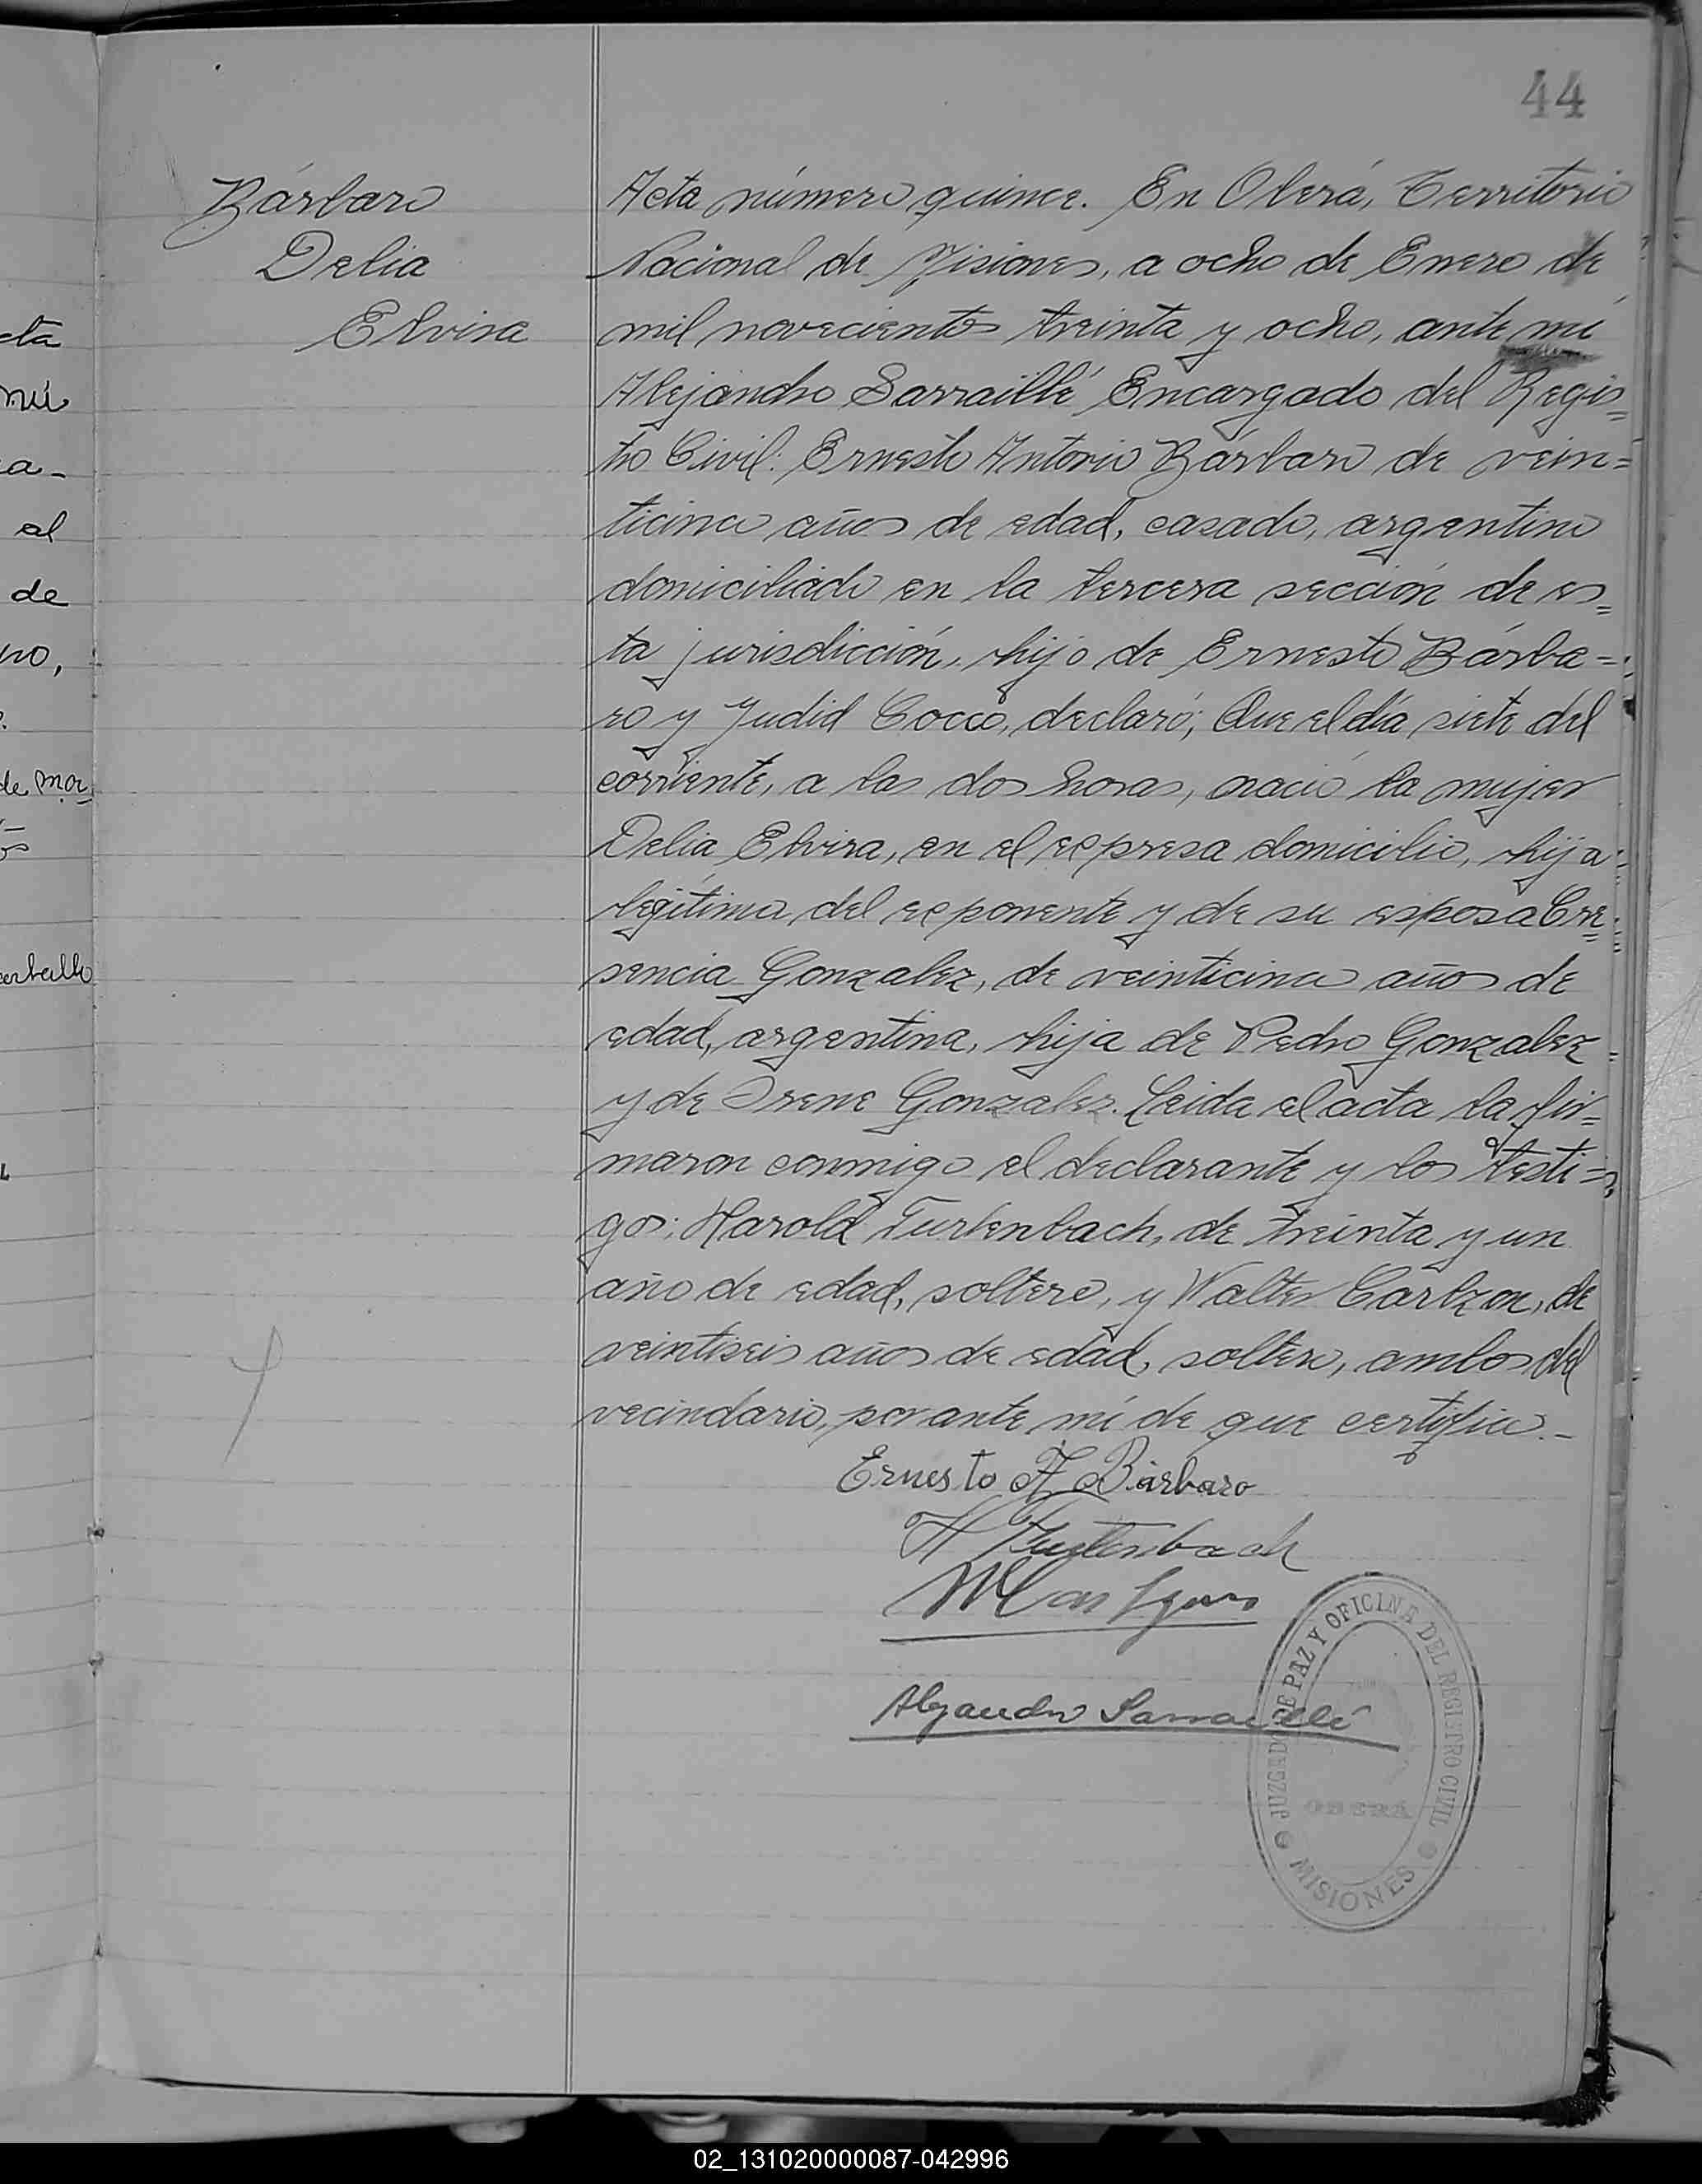 44
Bárbaro
Delia
Elvira
Acta número quince. En Oberá, Territorio
Nacional de Misiones, a ocho de Enero de
mil novecientos treinta y ocho, ante mí
Alejandro Sarraillé Encargado del Regis=
tro Civil: Ernesto Antonio Bárbaro de vein=
ticinco años de edad, casado, argentino
domiciliado en la tercera sección de es=
ta jurisdicción, hijo de Ernesto Bárba=
ro y Judid Cocco, declaró; Que el día siete del
corriente, a las dos horas, nació la mujer
Delia Elvira, en el expresa domicilio, hija
legítima del exponente y de su esposa Cre=
sencia Gonzalez, de veinticinco años de
edad, argentina, hija de Pedro Gonzalez
y de Irene Gonzalez. Leida el acta la fir=
maron conmigo el declarante y los testi=
gos: Harold Furtenbach, de treinta y un
año de edad, soltero, y Walter Carlzon, de
veintiseis años de edad, soltero, ambos del
vecindario, por ante mí de que certifico.-
Ernesto A Bárbaro
H Furtenbach
Alejandro Sarraillé
JUZGADO DE PAZ Y OFICINA DEL REGISTRO CIVIL
OBERÁ
MISIONES
cta
mí
a-
al
de
no,
de mar
02_131020000087-042996